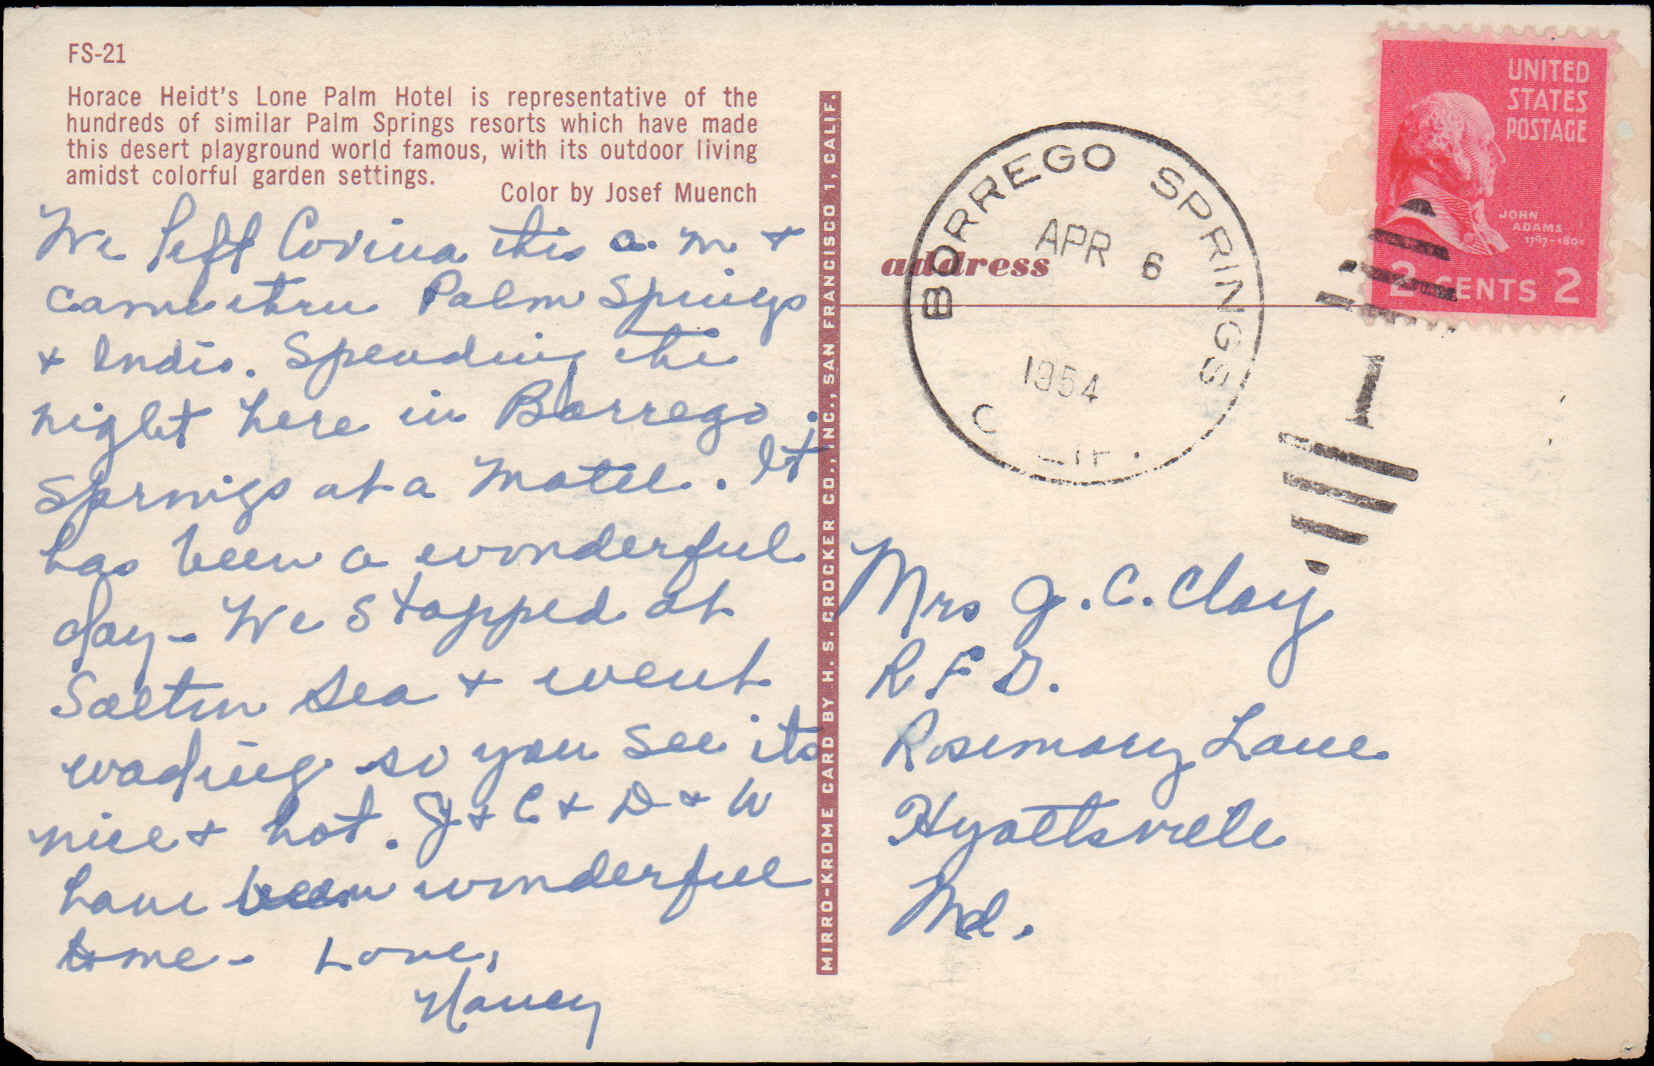 FS-21
Horace Heidt's Lone Palm Hotel is representative of the
hundreds of similar Palm Springs resorts which have made
this desert playground world famous, with its outdoor living
amidst colorful garden settings.
Color by Josef Muench
We left Covina this a.m +
came thru Palm Springs
+ Indio. Spending the
night here in Borrego
Springs at a Motel. It
has been a wonderful
day - We stopped at
Salton Sea + went
wading so you see its
nice + hot. J + C + D + W
have been wonderful
to me - Love,
Nancy
MIRRO-KROME CARD BY H. S. CROCKER CO., INC., SAN FRANCISCO 1, CALIF.
address
BORREGO SPRINGS
APR 6
1954
CALIF.
UNITED
STATES
POSTAGE
JOHN
ADAMS
1797-1801
2 CENTS 2
1
Mrs J. C. Clay
R F D.
Rosemary Lane
Hyattsville
Md.